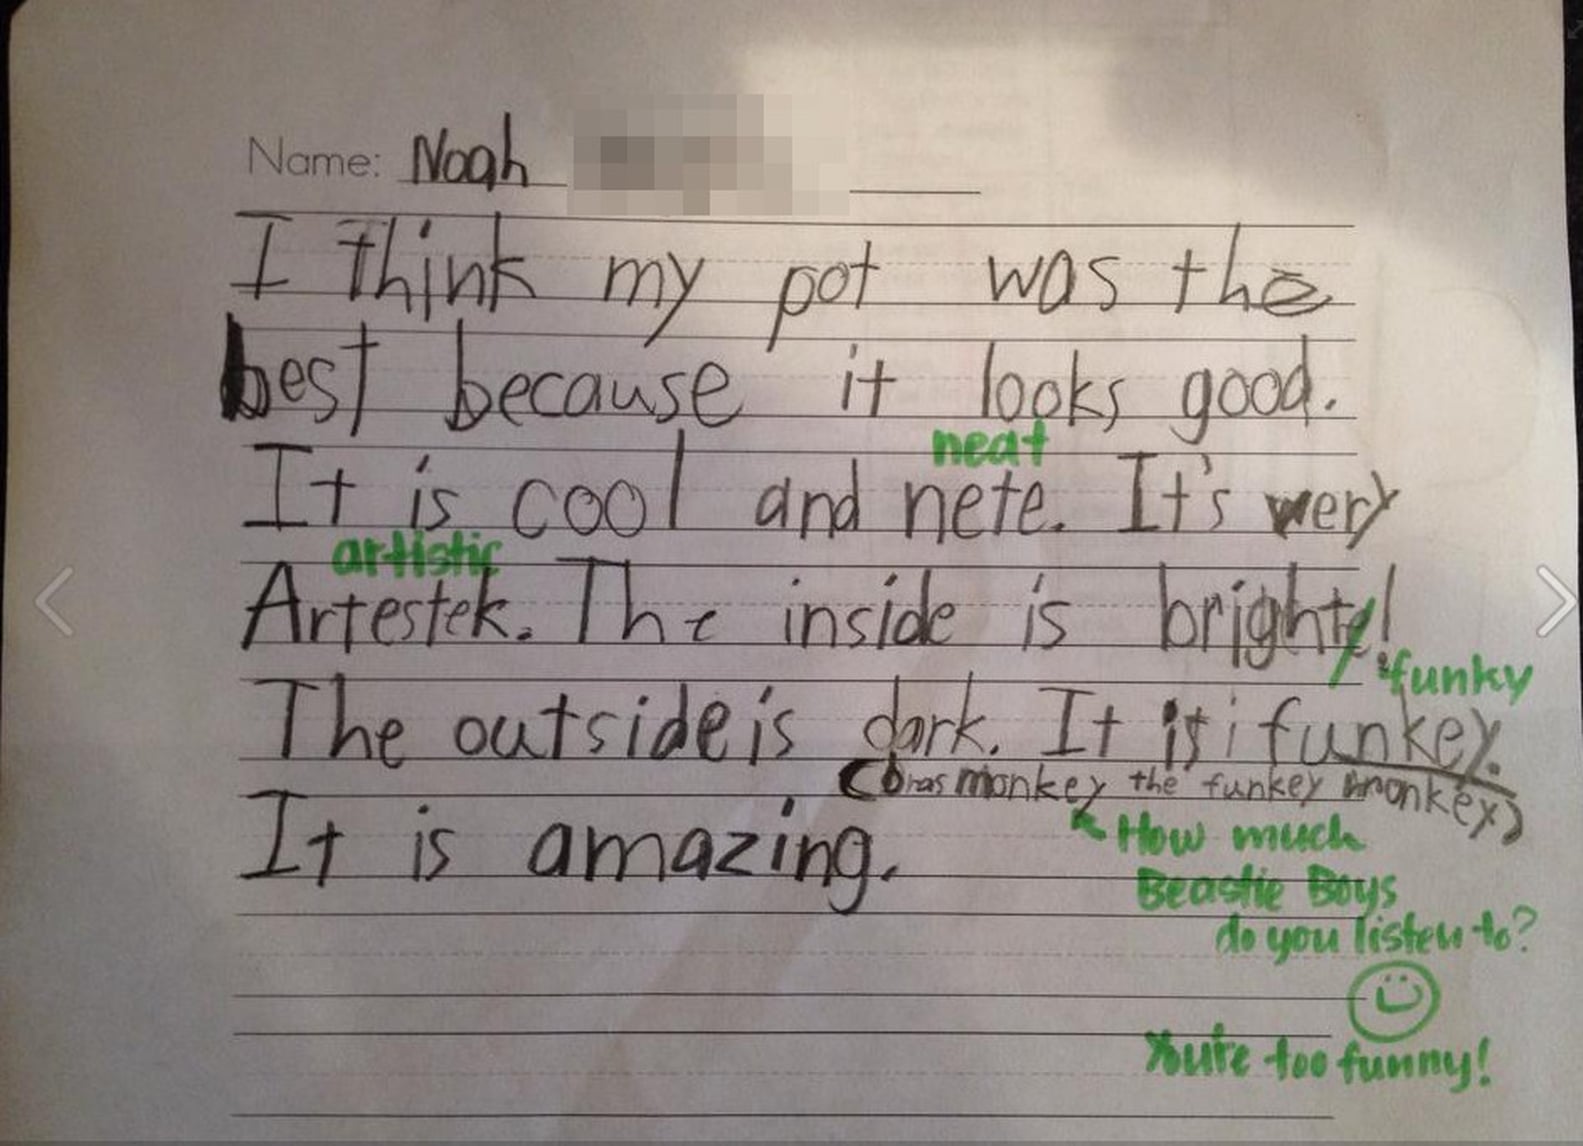 Name: Noah
I think my pot was the
best because it looks good.
neat
It is cool and nete. It's very
artistic
Artestek. The inside is brighte!
funky
The outside is dark. It is funkey.
(bras monkey the funkey monkey)
It is amazing.
How much
Beastie Boys
do you listen to?
You're too funny!